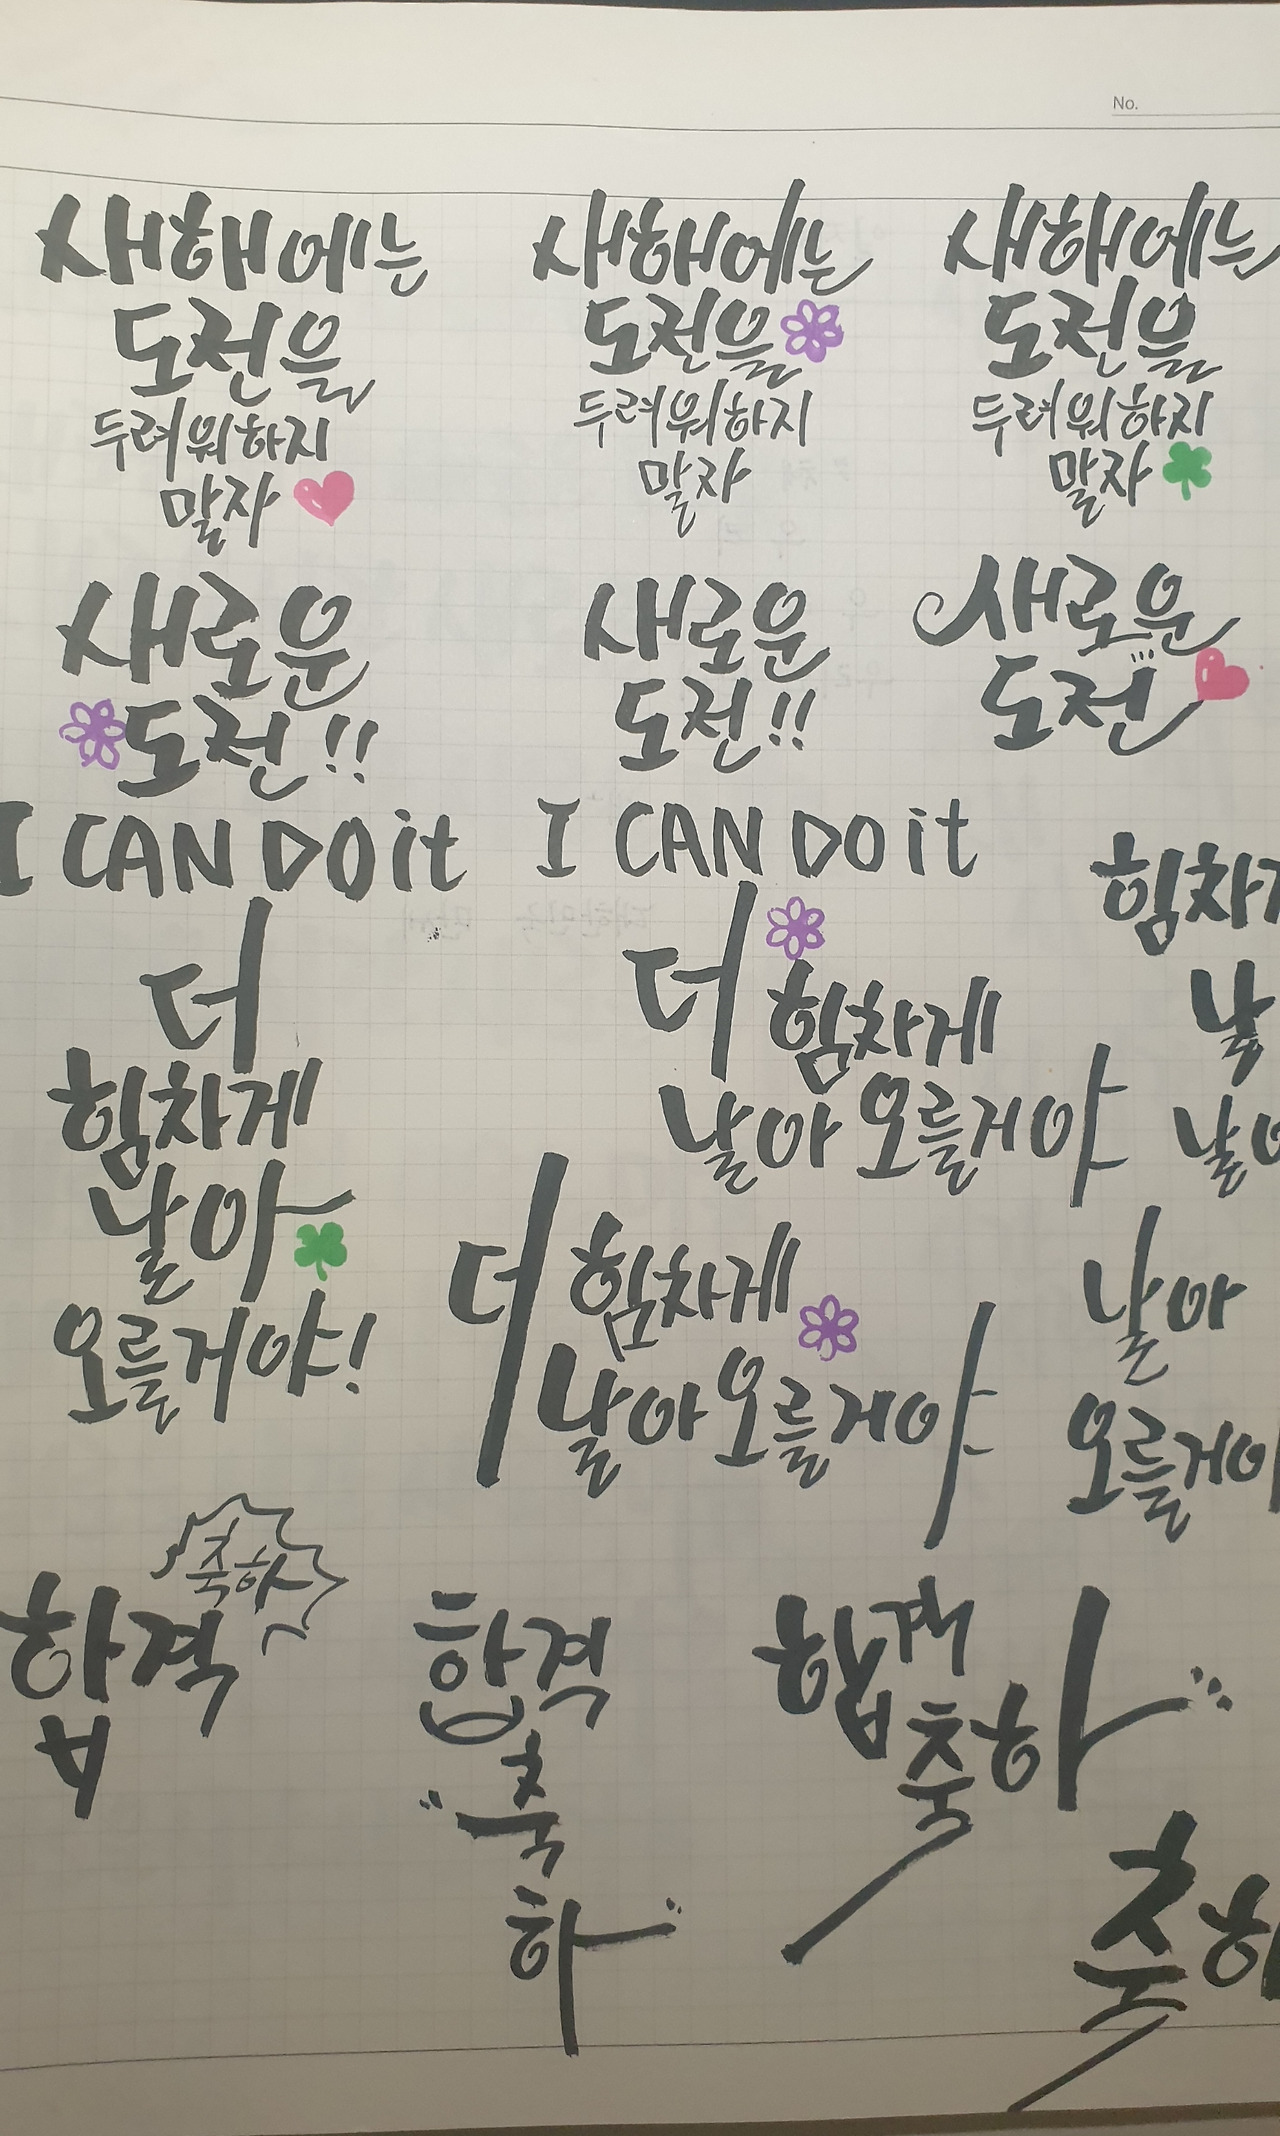 No.
새해에는
도전을
두려워하지
말자
새해에는
도전을
두려워하지
말자
새해에는
도전을
두려워하지
말자
새로운
도전!!
새로운
도전!!
새로운
도전
I CAN DO it
I CAN DO it
더
힘차게
날아
오를거야!
더 힘차게
날아 오를거야
더 힘차게
날아 오를거야
힘차게
날아
오를거야
축하
합격
합격
축
하
합격
축하
축하